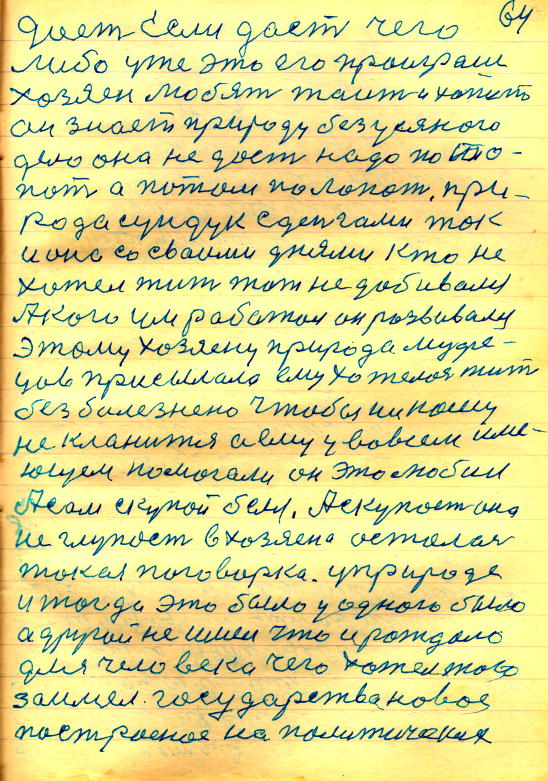 64
дает Если даст чего
либо уже это его проиграш
хозяен любят жит и хотит
он знает природу без усякого
дело она не даст надо по што-
пат а потом полопат, при-
рода сундук с денгами так
и она со своими днями кто не
хотел жит тот не добиваля
А кого им работал он розвиваля
Этому хозяену природа мудре-
цов присылала ему хотелоя жит
без болезнено чтобы ни кому
не кланится а ему у вовсем име-
ющем помогали он это любил
А сам скупой был. А скупост она
не глупост в хозяена осталая
токая поговорка. уприроде
и тогда это было у одного было
а другой не имел что и рождало
для человека чего хотел тово
заимел. государства новое
построеное на политических